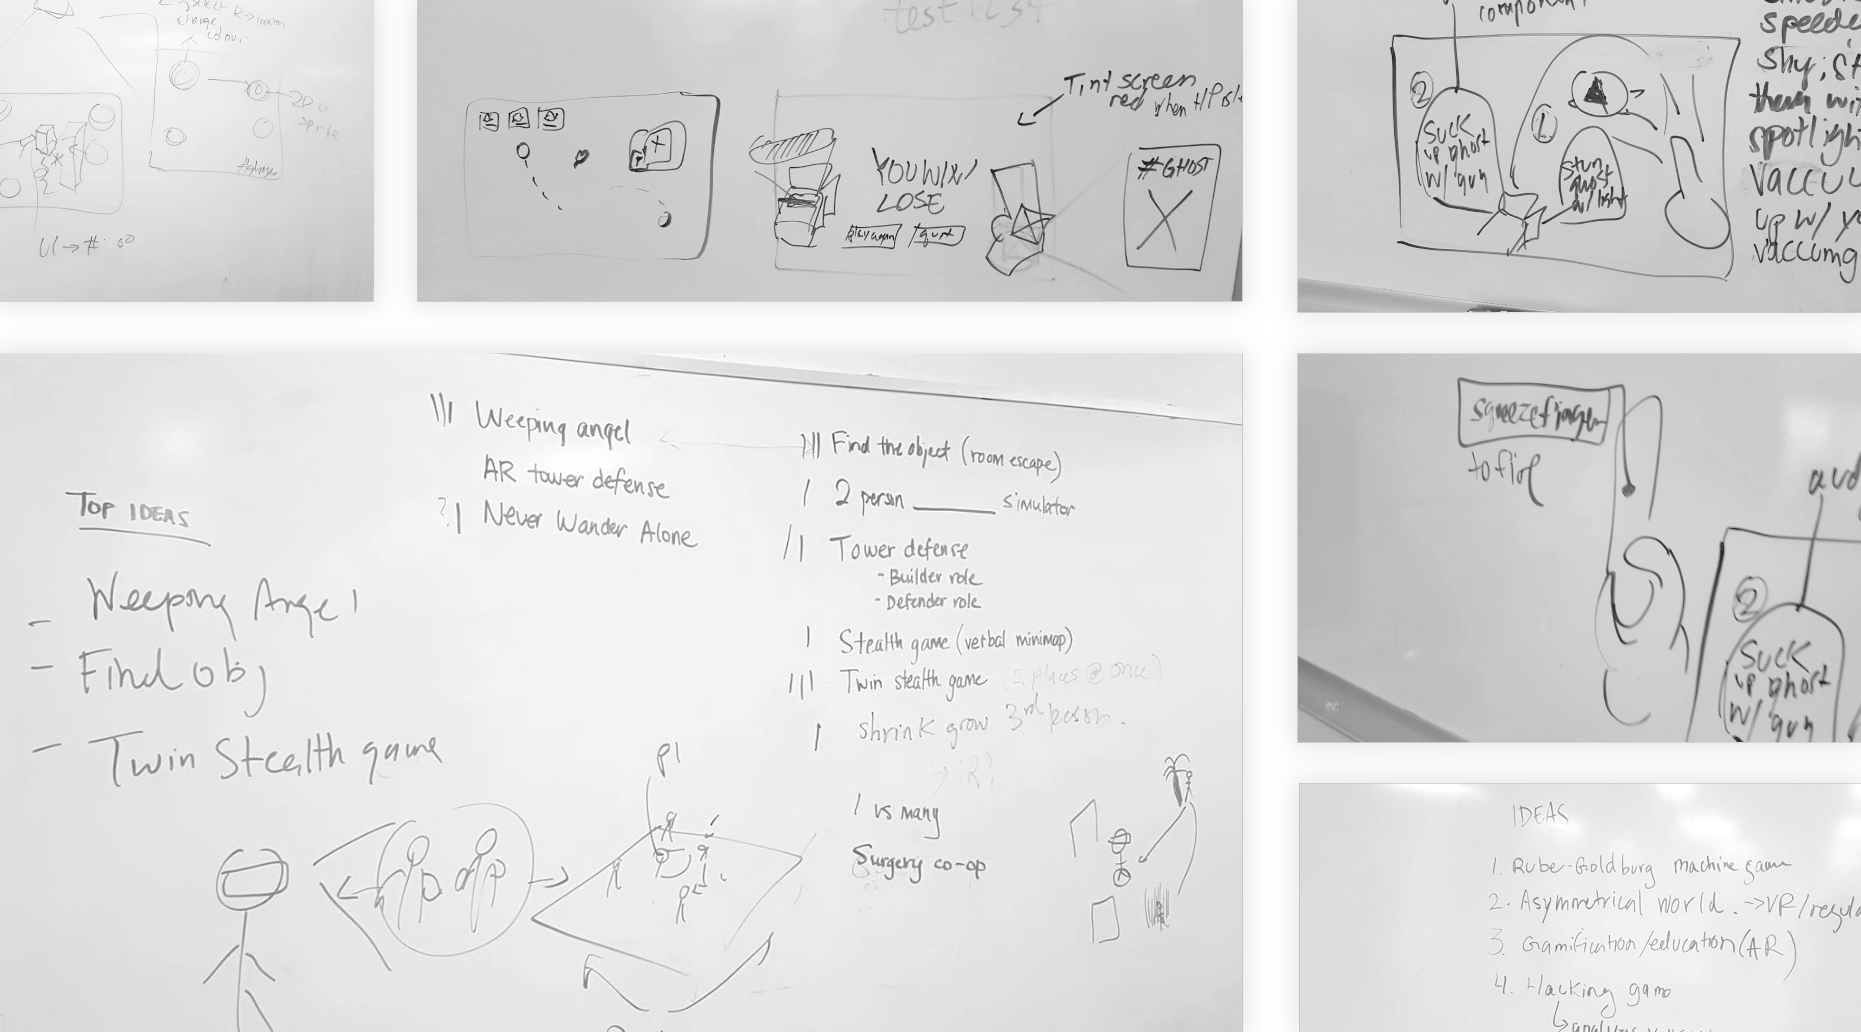 select
change
colour
UI → #: 00
test
Tint screen
red when HP
YOU WIN/
LOSE
play again
quit
#GHOST
②
suck
up ghost
w/ gun
①
stun
ghost
w/ light
speede
shy, st
them wi
spotligh
vaccu
up w/ yo
vaccumg
TOP IDEAS
- Weeping Angel
- Find obj
- Twin Stealth game
||| Weeping angel
AR tower defense
?| Never Wander Alone
Find the object (room escape)
| 2 person ______ simulator
|| Tower defense
- Builder role
- Defender role
| Stealth game (verbal minimap)
||| Twin stealth game (2 places @ once)
| shrink grow 3rd person.
1 vs many
Surgery co-op
P1
squeeze finger
to fire
②
suck
up ghost
w/ gun
IDEAS
1. Rube-Goldburg machine game
2. Asymmetrical world. →VR/regula
3. Gamification/education (AR)
4. Hacking game